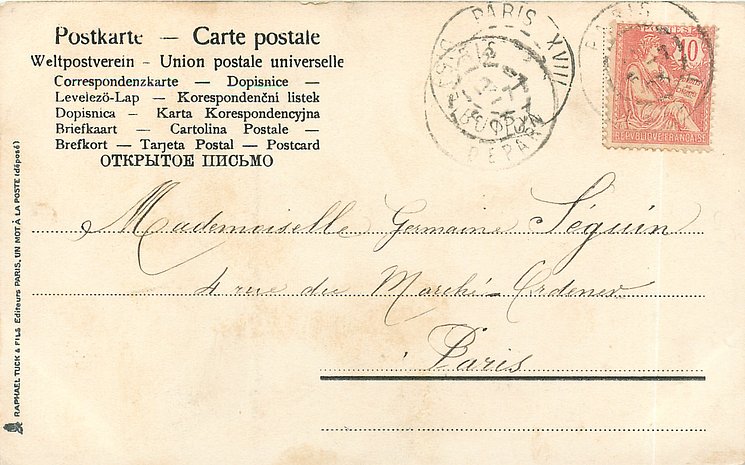 Postkarte — Carte postale
Weltpostverein - Union postale universelle
Correspondenzkarte — Dopisnice —
Levelezö-Lap — Korespondenční listek
Dopisnica — Karta Korespondencyjna
Briefkaart — Cartolina Postale —
Brefkort — Tarjeta Postal — Postcard
ОТКРЫТОЕ ПИСЬМО
PARIS XVIII
DEPART
PARIS
POSTES
10
RÉPUBLIQUE FRANÇAISE
Mademoiselle Germaine Séguin
4 rue du Marché-Ordener
Paris
RAPHAEL TUCK & FILS Editeurs PARIS, UN MOT À LA POSTE (déposé)